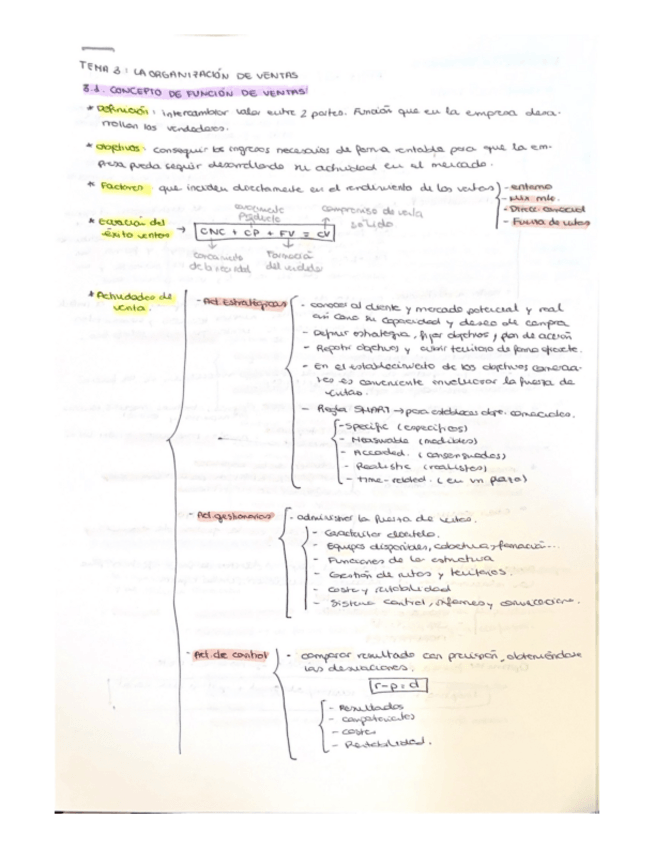 TEMA 3: LA ORGANIZACIÓN DE VENTAS
3.1. CONCEPTO DE FUNCIÓN DE VENTAS
* Definición: intercambiar valor entre 2 partes. Función que en la empresa desa-
rrollan los vendedores.
* Objetivos: conseguir los ingresos necesarios de forma rentable para que la em-
presa pueda seguir desarrollando su actividad en el mercado.
* Factores que inciden directamente en el rendimiento de las ventas
- entorno
- Mix mk.
- Direcc. comercial
- Fuerza de ventas
* Ecuación del éxito ventas →
conocimiento producto
compromiso de venta sólido
CNC + CP + FV = CV
conocimiento de la necesidad
Formación del vendedor
* Actividades de venta.
- Act. estratégicas
- conocer al cliente y mercado potencial y real
así como su capacidad y deseo de compra
- Definir estrategia, fijar objetivos, plan de acción
- Repartir objetivos y cubrir territorio de forma eficiente.
- En el establecimiento de los objetivos comercia-
les es conveniente involucrar la fuerza de
ventas.
- Regla SMART → para establecer obje. comerciales.
- Specific (específicos)
- Measurable (medibles)
- Accorded. (consensuados)
- Realistic (realistas)
- Time-related. (en un plazo)
- Act. gestionarias
- administrar la fuerza de ventas.
- Caracterizar clientela.
- Equipos disponibles, cobertura, formación...
- Funciones de la estructura
- Gestión de rutas y territorios.
- coste y rentabilidad
- Sistema control, informes y comunicaciones.
- Act. de control
- comparar resultado con previsión, obteniéndose
las desviaciones.
r-p=d
- Resultados
- comportamientos
- costes
- Rentabilidad.